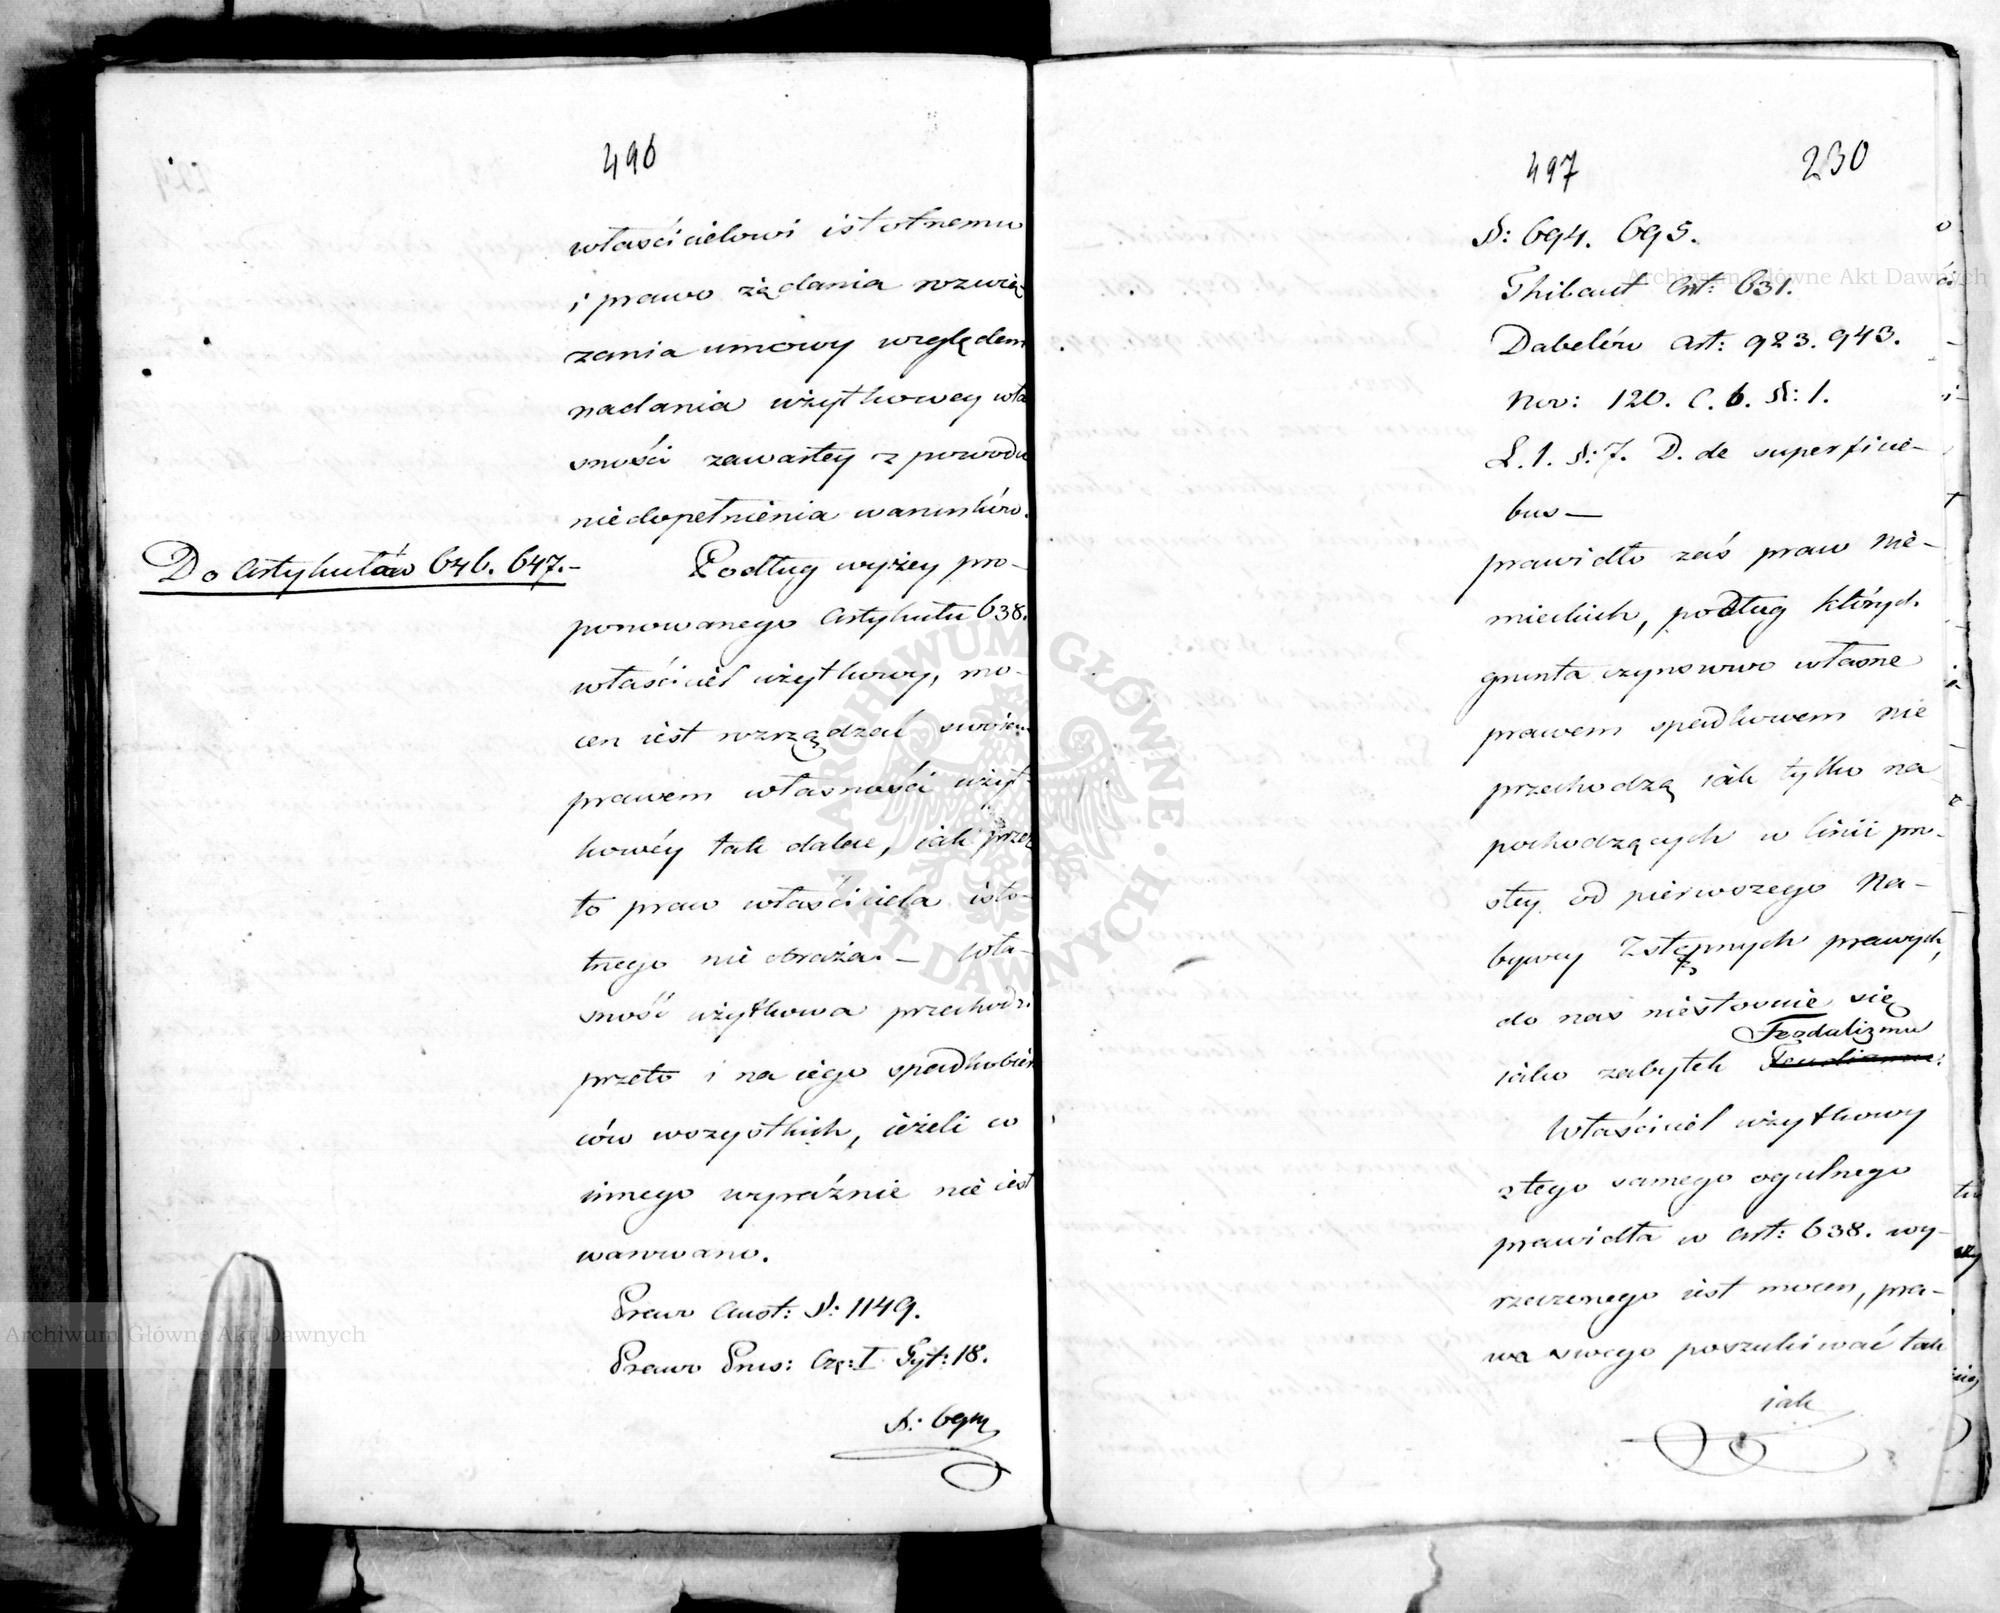 496
właścicielowi istotnemu
i prawo żądania rozwią
zania umowy względem
nadania użytkowey wła
sności zawartey z powodu
niedopełnienia warunków.
Do Artykułów 646. 647.-
Podług wyżey pro-
ponowanego Artykułu 638.
właściciel użytkowy, mo-
cen iest rozrządzać swoiem
prawem własności użyt-
kowéy tak dalece, iak przez
to praw właściciela isto-
tnego nie obraża. – Wła-
sność użytkowa przechodzi
przeto i na iego spadkobier
ców wszystkich, ieżeli co
innego wyraźnie nie iest
warowano.
Prawo Aust: §: 1149.
Prawo Prus: Czę: I Tyt: 18.
§: 694
497 230
§: 694. 695.
Thibaut Art: 631.
Dabelów Art: 923. 943.
Nov: 120. C. 6. §: 1.
L. 1. §: 7. D. de superficie-
bus —
prawidło zaś praw Nie-
mieckich, podług których
grunta czynszowo własne
prawem spadkowem nie
przechodzą iak tylko na
pochodzących w linii pro-
stey od pierwszego Na-
bywcy Zstępnych prawych,
do nas niestosuie się
Feudalizmu
iako zabytek
Właściciel użytkowy
z tego samego ogulnego
prawidła w Art: 638. wy-
rzeczonego iest mocen, pra-
wa swego poszukiwać tak
iak
Archiwum Główne Akt Dawnych
ARCHIWUM GŁÓWNE AKT DAWNYCH
Archiwum Główne Akt Dawnych